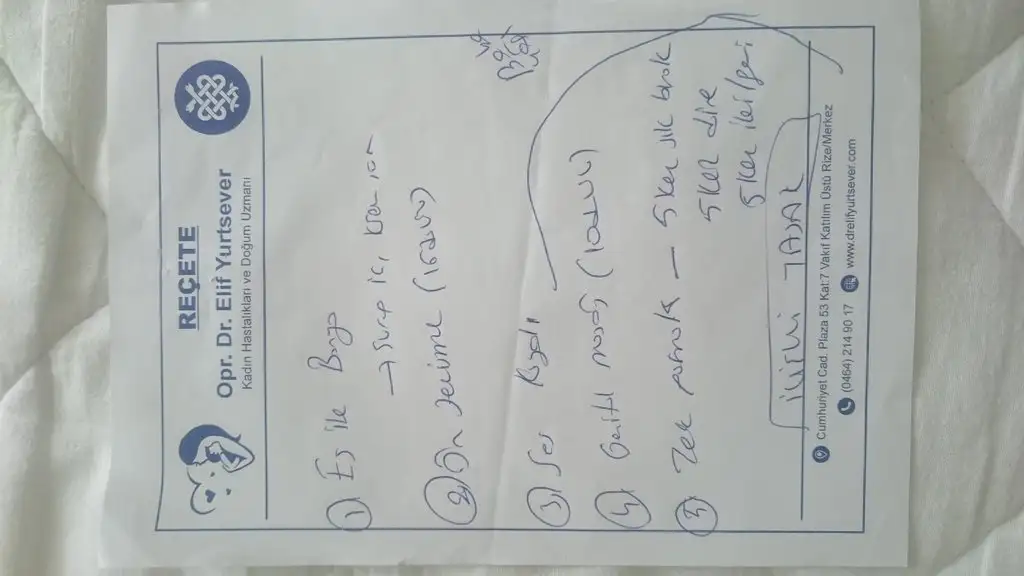 REÇETE
Opr. Dr. Elif Yurtsever
Kadın Hastalıkları ve Doğum Uzmanı
1) Eş ile Banyo
2) Ön sevişme (15dk)
3) Ses
4) Genital masaj (10dk)
5) Tek parmak — 5 ker sık bırak
5 ker
5 ker ileri/geri
İlişki YASAK
Cumhuriyet Cad. Plaza 53 Kat:7 Vakıf Katılım Üstü Rize/Merkez
(0464) 214 90 17 www.drelifyurtsever.com